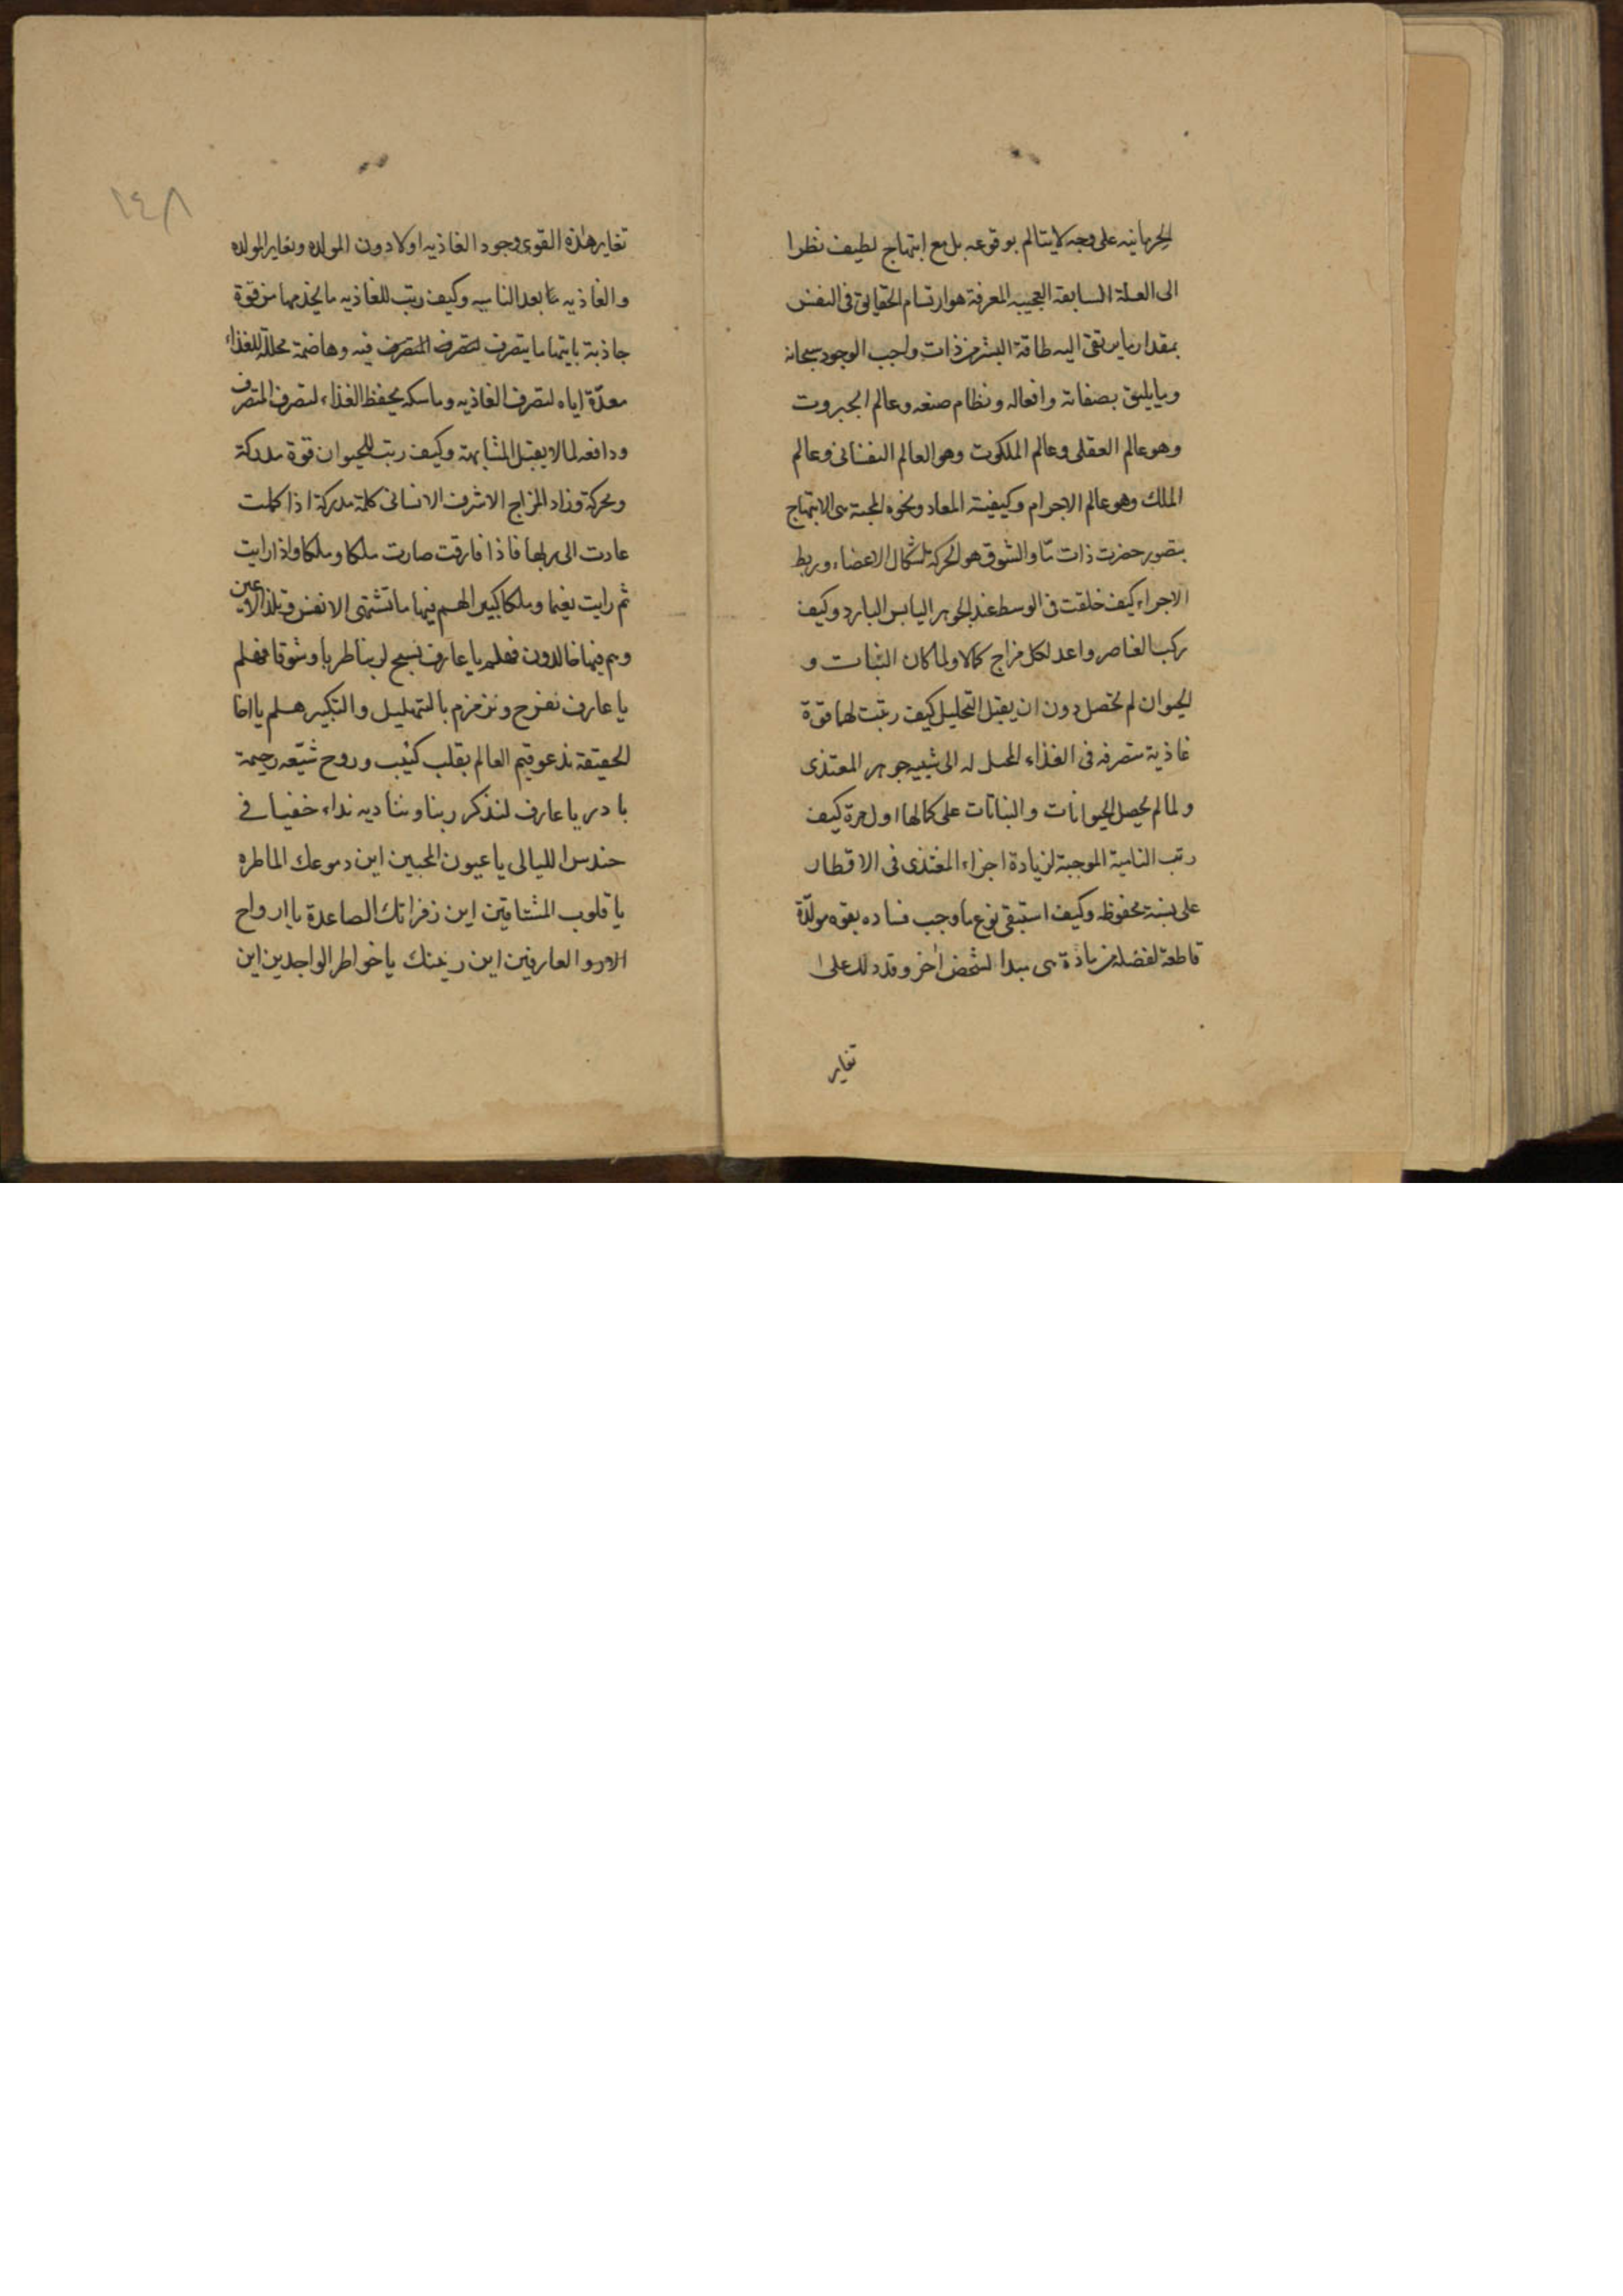 الجرمانيه على وجه لا يتالم بوقوعه بل مع ابتهاج لطيف نظرا
الى العلة السابقة العجيبه المعرفة هو ارتسام الحقايق فى النفس
بمقدار ما يرتقى اليه طاقة البشر من ذات واجب الوجود سبحانه
وما يليق بصفاته وافعاله ونظام صنعه وعالم الجبروت
وهو عالم العقلى وعالم الملكوت وهو العالم النفسانى وعالم
الملك وهو عالم الاجرام وكيفية المعاد ونحوه المحبة هى الابتهاج
بتصور حضرت ذات ما والشوق هو الحركة الاعضاء وربط
الاجزاء كيف خلقت فى الوسط عند الجوهر اليابس البارد وكيف
ركب العناصر واعد لكل مزاج كمالا ولما كان النبات و
الحيوان لم تحصل دون ان يقبل التحليل كيف رتبت لهما قوة
غاذية متصرفه فى الغذاء المحيل له الى شبيه جوهر المغتذى
ولما لم يحصل الحيوانات والنباتات على كمالها اول مرة كيف
رتب النامية الموجبة لزيادة اجزاء المغتذى فى الاقطار
على نسبة محفوظه وكيف استبقى نوع ما وجب فساده بقوه مولدة
قاطعة لفضلة من مادة هى مبدا لشخص اخر وقد دلك على
تغاير
١٤٨
تغاير هذه القوى وجود الغاذيه اولا دون المولده وتغاير المولده
والغاذيه ما بعد الناميه وكيف رتب للغاذيه ما يخدمها من قوة
جاذبة ياتيها ما يتصرف لتصرف المتصرف فيه وهاضمة محللة للغذاء
معدّة اياه لتصرف الغاذيه وماسكه يحفظ الغذاء لتصرف المتصرف
ودافعه لما لا يقبل المشابهة وكيف رتب للحيوان قوة مدركة
ومحركة وزاد المزاج الاشرف الانسانى كلمة مدركة اذا كملت
عادت الى ربها فاذا فارقت صارت ملكا وملكا واذا رايت
ثم رايت نعيما وملكا كبيرا لهم فيها ما تشتهى الانفس وتلذ الاعين
وهم فيها خالدون فهلم يا عارف نسبح لربنا طربا وشوقا فهلم
يا عارف نفرح ونزمزم بالتهليل والتكبير هلم يا اخا
الحقيقة ندعو قيم العالم بقلب كئيب وروح شيّقه رحيمة
بادر يا عارف لنذكر ربنا ونناديه نداء خفيا فى
حندس الليالى يا عيون المحبين اين دموعك الماطره
يا قلوب المشتاقين اين زفراتك الصاعدة يا ارواح
العارفين اين يا خواطر الواجدين اين